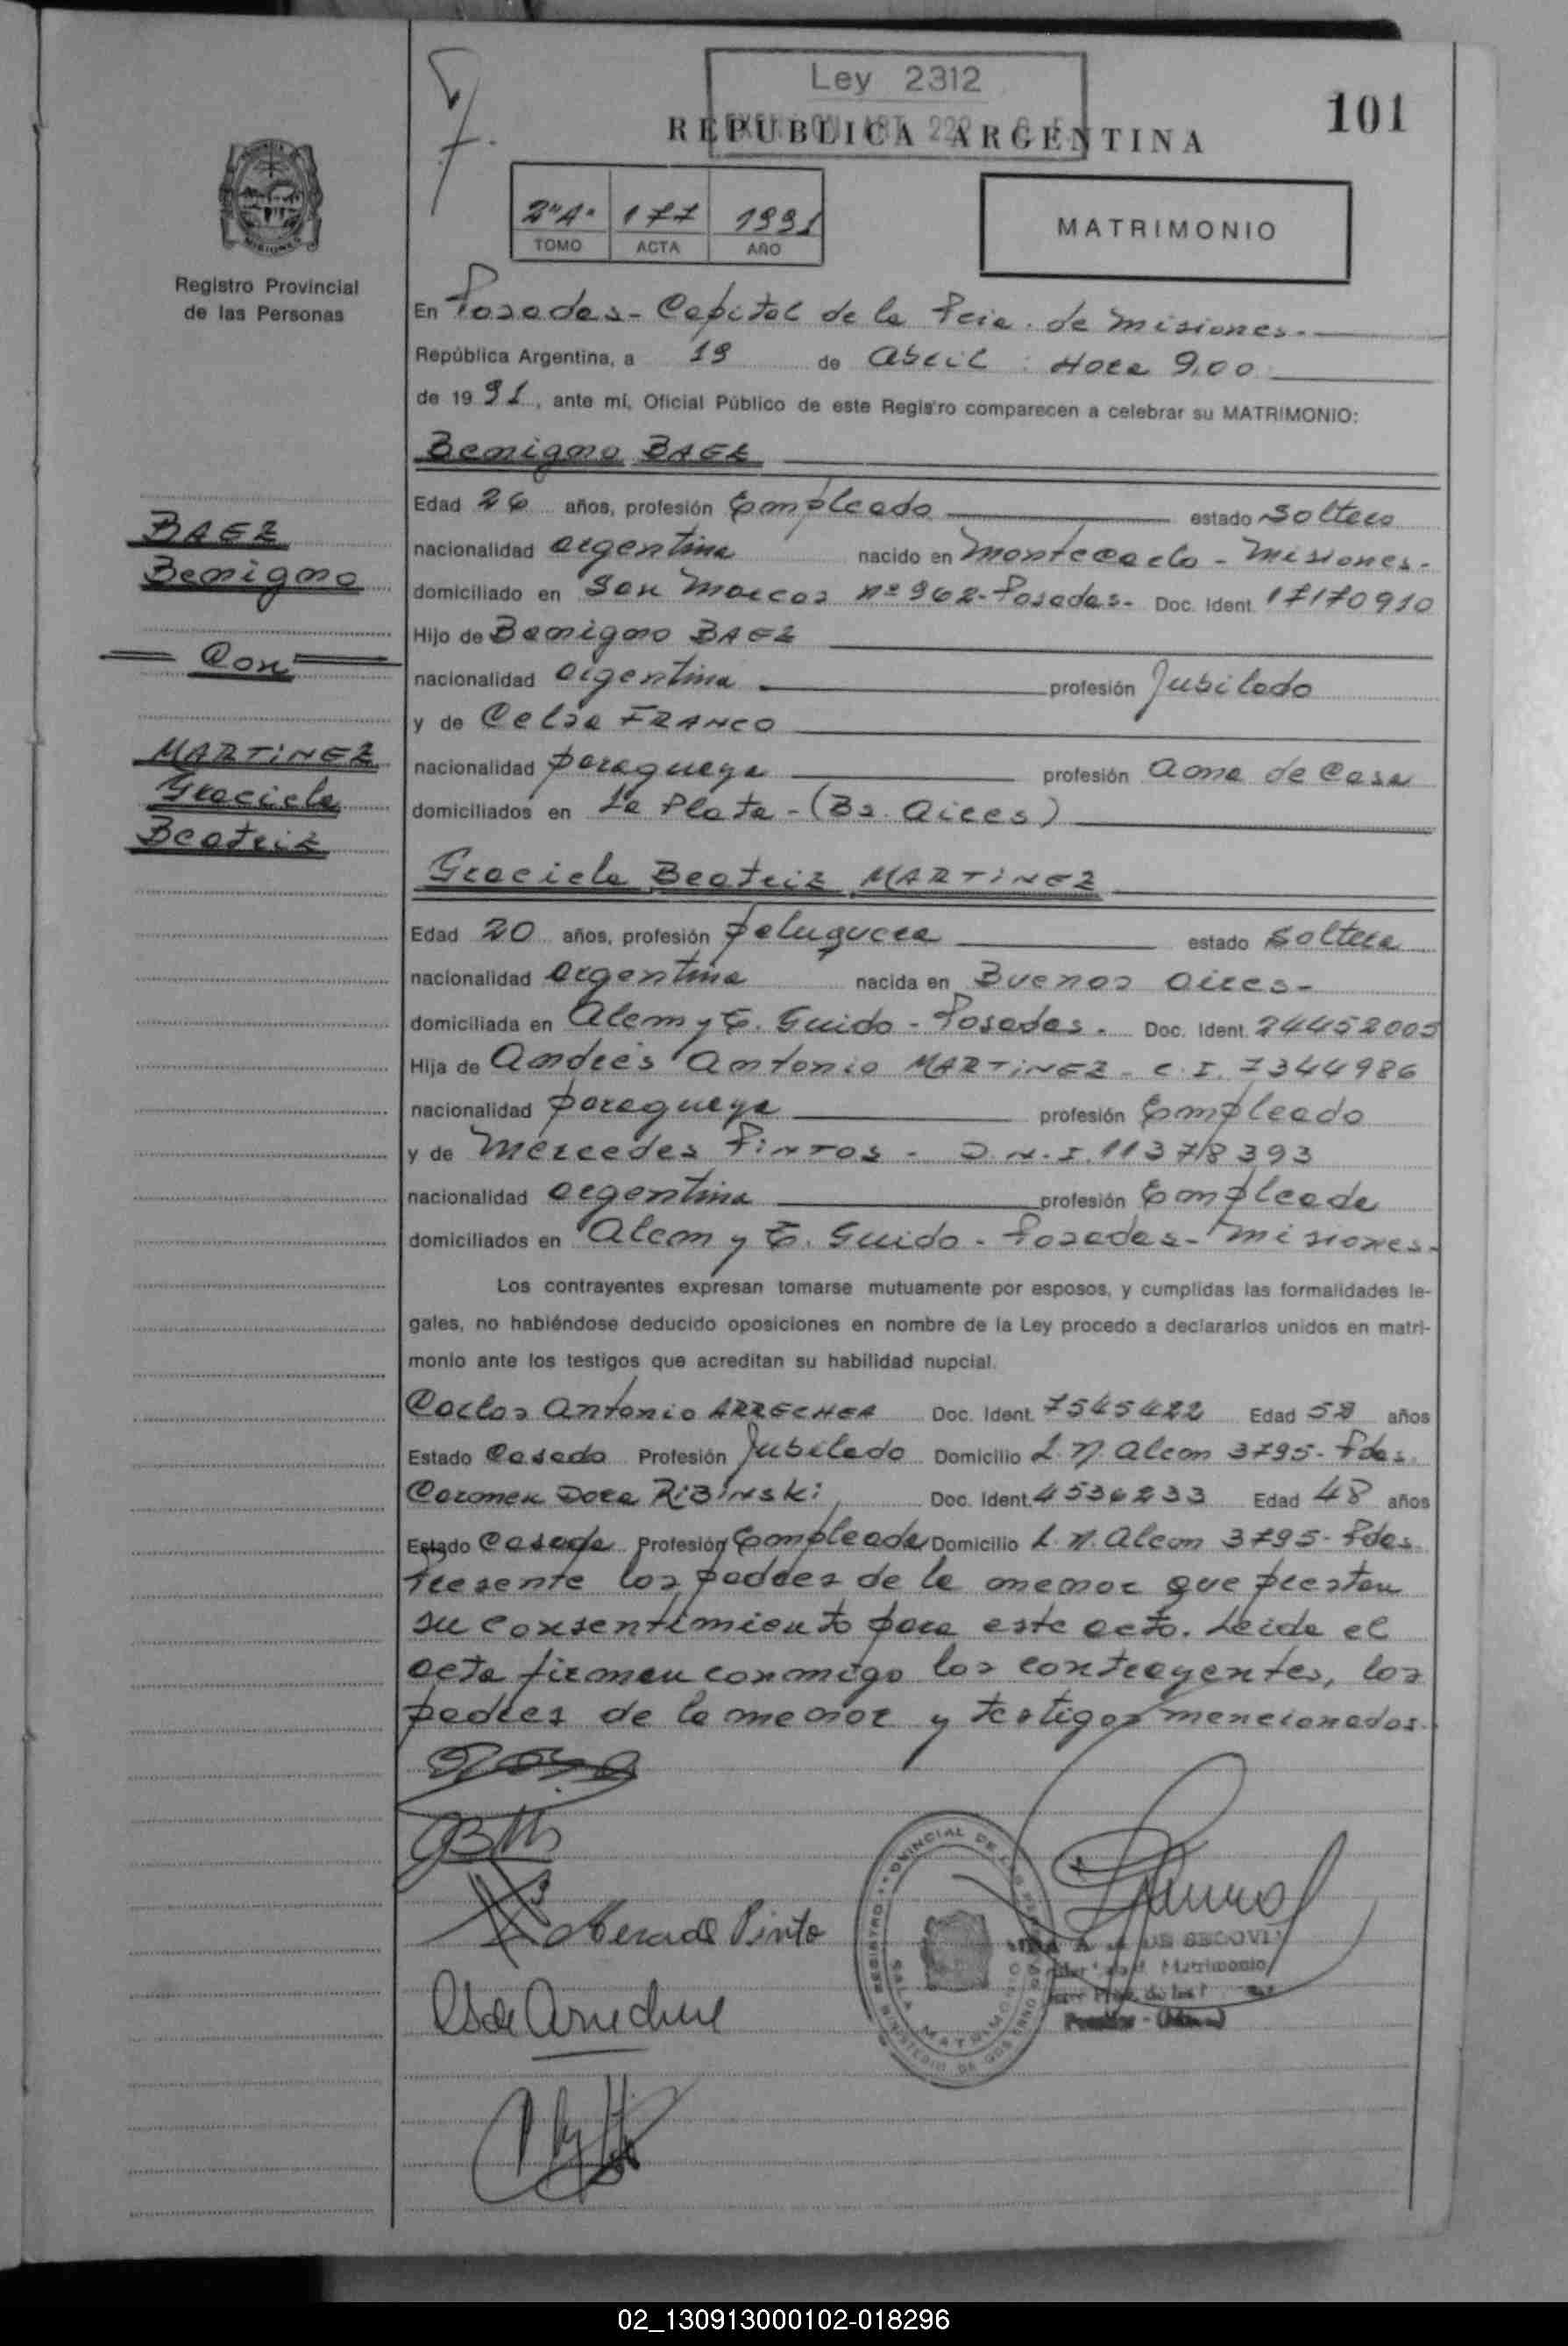 Ley 2312
REPUBLICA ARGENTINA
101
2"A" 177 1991
TOMO ACTA AÑO
MATRIMONIO
MISIONES
Registro Provincial
de las Personas
En Posadas - Capital de la Pcia. de Misiones.-
República Argentina, a 19 de Abril : Hora 9,00
de 1991, ante mí, Oficial Público de este Registro comparecen a celebrar su MATRIMONIO:
Benigno BAEZ
Edad 26 años, profesión Empleado estado Soltero
nacionalidad argentina nacido en Montecarlo - Misiones.-
domiciliado en San Marcos nº 962 - Posadas - Doc. Ident. 17170910
Hijo de Benigno BAEZ
nacionalidad argentina profesión Jubilado
y de Celsa FRANCO
nacionalidad paraguaya profesión Ama de Casa
domiciliados en La Plata - (Bs. Aires)
BAEZ
Benigno
Con
MARTINEZ
Graciela
Beatriz
Graciela Beatriz MARTINEZ
Edad 20 años, profesión peluquera estado Soltera
nacionalidad argentina nacida en Buenos Aires -
domiciliada en Alem y T. Guido - Posadas. Doc. Ident. 24452005
Hija de Andrés Antonio MARTINEZ - C.I. 7344986
nacionalidad paraguaya profesión Empleado
y de Mercedes PINTOS - D.N.I. 11378393
nacionalidad argentina profesión Empleada
domiciliados en Alem y T. Guido - Posadas - Misiones.-
Los contrayentes expresan tomarse mutuamente por esposos, y cumplidas las formalidades le-
gales, no habiéndose deducido oposiciones en nombre de la Ley procedo a declararlos unidos en matri-
monio ante los testigos que acreditan su habilidad nupcial.
Carlos Antonio ARRECHEA Doc. Ident. 7545422 Edad 58 años
Estado Casado Profesión Jubilado Domicilio L. N. Alem 3795 - Pdas.
Carmen Dora RIBINSKI Doc. Ident. 4536233 Edad 48 años
Estado Casada Profesión Empleada Domicilio L. N. Alem 3795 - Pdas.
Presente los padres de la menor que prestan
su consentimiento para este acto. Leida el
acta firman conmigo los contrayentes, los
padres de la menor y testigos mencionados.
DE SEGOVIA
Matrimonio
02_130913000102-018296